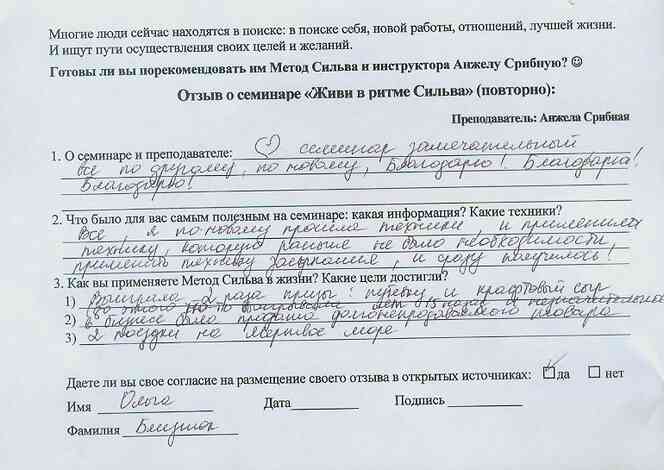 Многие люди сейчас находятся в поиске: в поиске себя, новой работы, отношений, лучшей жизни.
И ищут пути осуществления своих целей и желаний.
Готовы ли вы порекомендовать им Метод Сильва и инструктора Анжелу Срибную? ☺
Отзыв о семинаре «Живи в ритме Сильва» (повторно):
Преподаватель: Анжела Срибная
1. О семинаре и преподавателе: семинар замечательный
все по другому, по новому, Благодарю! Благодарна!
Благодарю!
2. Что было для вас самым полезным на семинаре: какая информация? Какие техники?
Все, я по новому прошла техники, и применила
технику, которую раньше не было необходимости,
применить технику засыпания, и сразу получилось!
3. Как вы применяете Метод Сильва в жизни? Какие цели достигли?
1) Выиграла 2 раза призы: путевку и крафтовый сыр
до этого лет 15 назад и незначительное
2) в бизнесе была продажа долгонепродаваемого товара
3) 2 поездки на мертвое море
Даете ли вы свое согласие на размещение своего отзыва в открытых источниках: да нет
Имя Ольга Дата Подпись
Фамилия